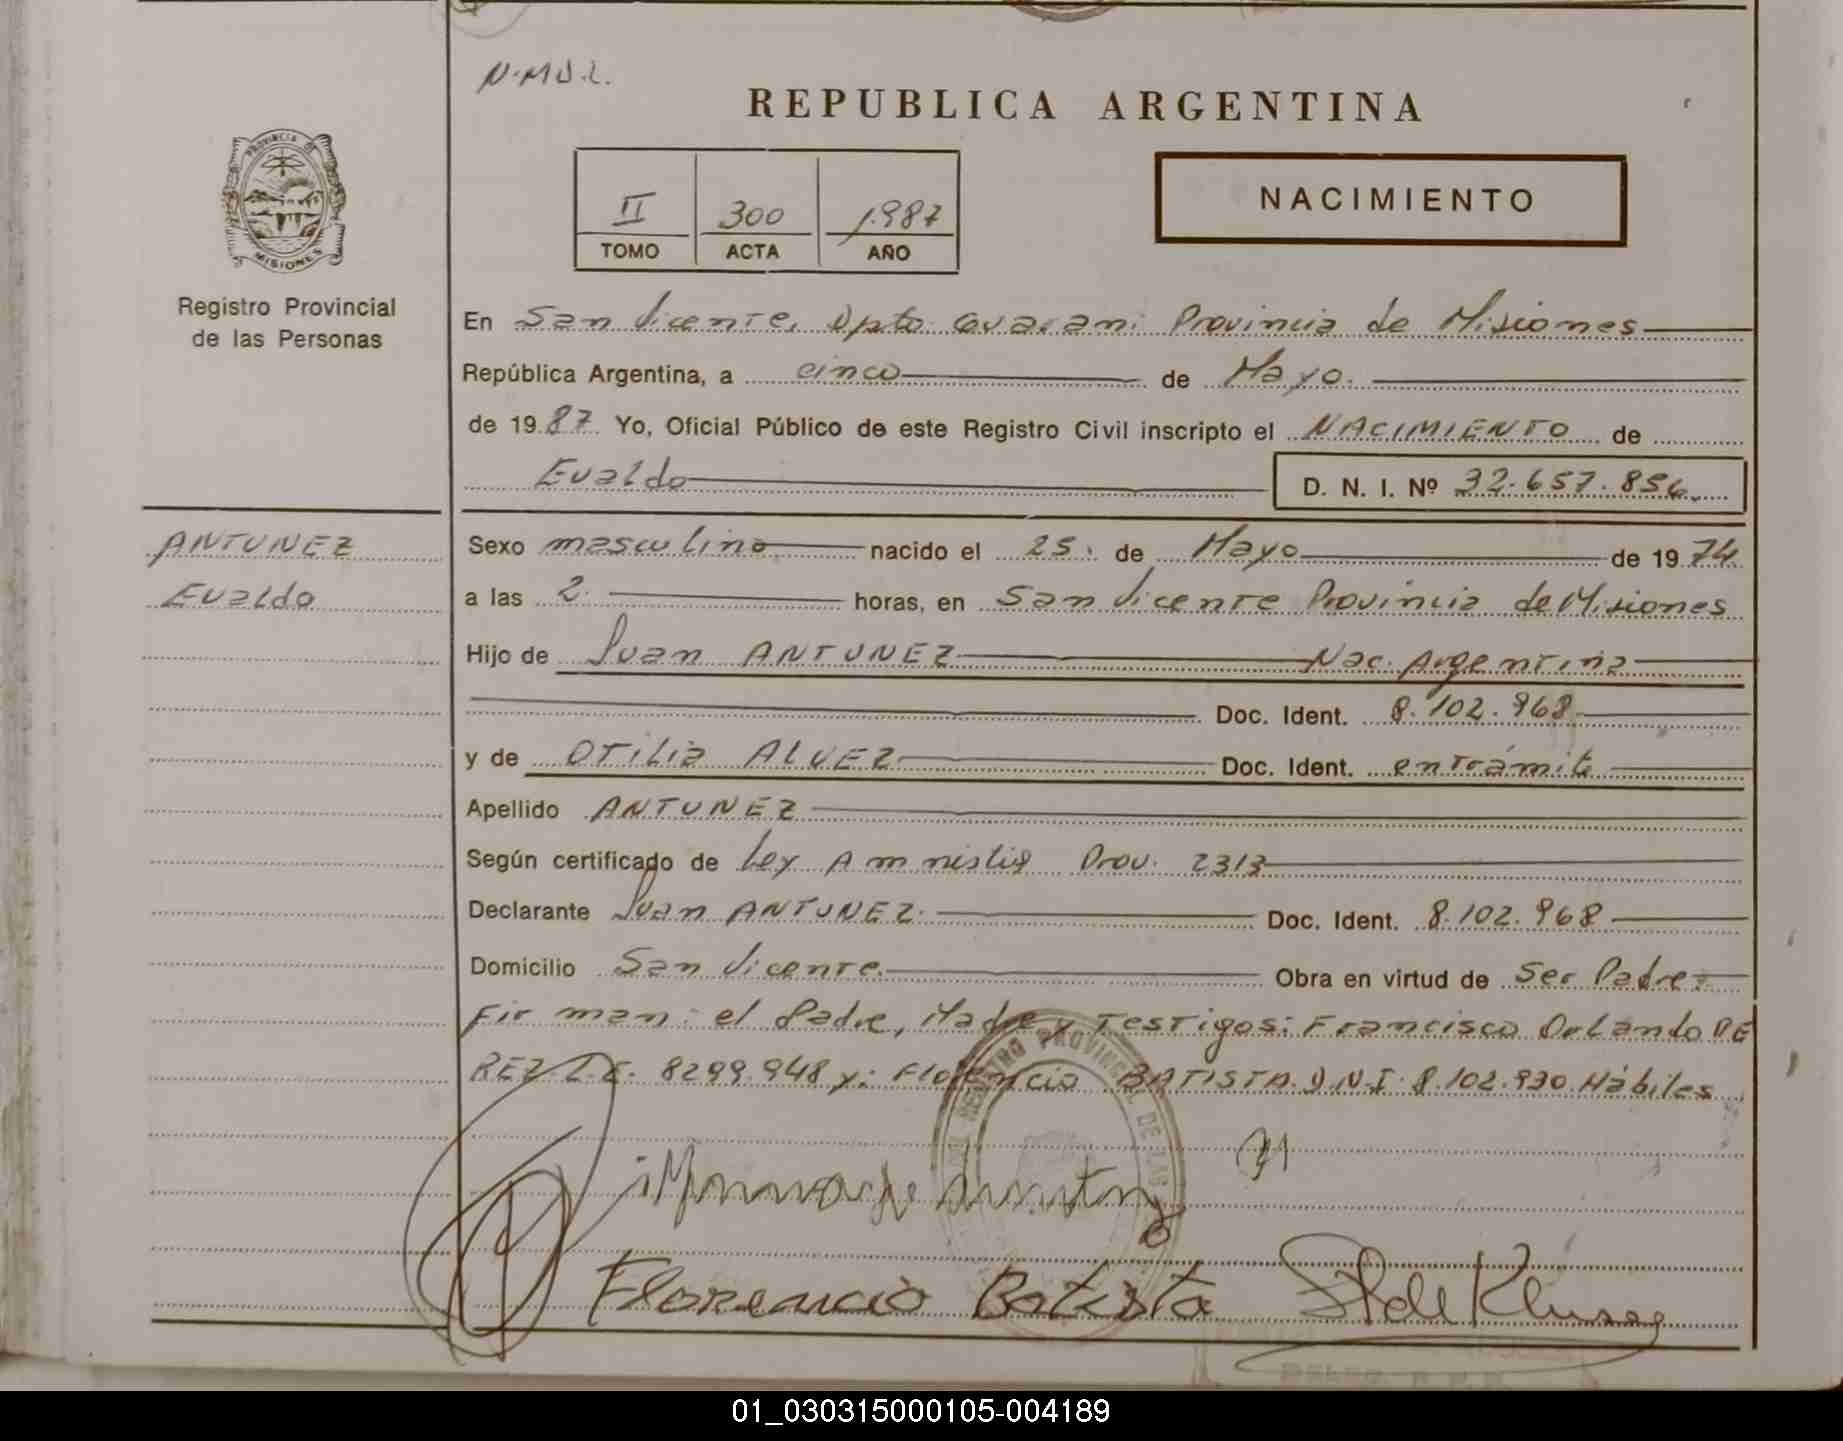 N.MU.L.
REPUBLICA ARGENTINA
PROVINCIA DE
MISIONES
Registro Provincial
de las Personas
II 300 1.987
TOMO ACTA AÑO
NACIMIENTO
En San Vicente, Dpto Guarani Provincia de Misiones
República Argentina, a cinco de Mayo.
de 19 87 Yo, Oficial Público de este Registro Civil inscripto el NACIMIENTO de
Evaldo D. N. I. Nº 32.657.856.
ANTUNEZ
Evaldo
Sexo masculino nacido el 25. de Mayo de 19 74.
a las 2. horas, en San Vicente Provincia de Misiones
Hijo de Juan ANTUNEZ Nac. Argentina
Doc. Ident. 8.102.968
y de OTiLia ALVEZ Doc. Ident. en trámite
Apellido ANTUNEZ
Según certificado de Ley Amnistia Prov. 2313
Declarante Juan ANTUNEZ. Doc. Ident. 8.102.968
Domicilio San Vicente. Obra en virtud de Ser Padre
Firman: el Padre, Madre y Testigos: Francisco Orlando PE
REZ L.E. 8299.948 y: Florencio BATISTA D.N.I. 8.102.930 Hábiles
Florencio Batista
01_030315000105-004189